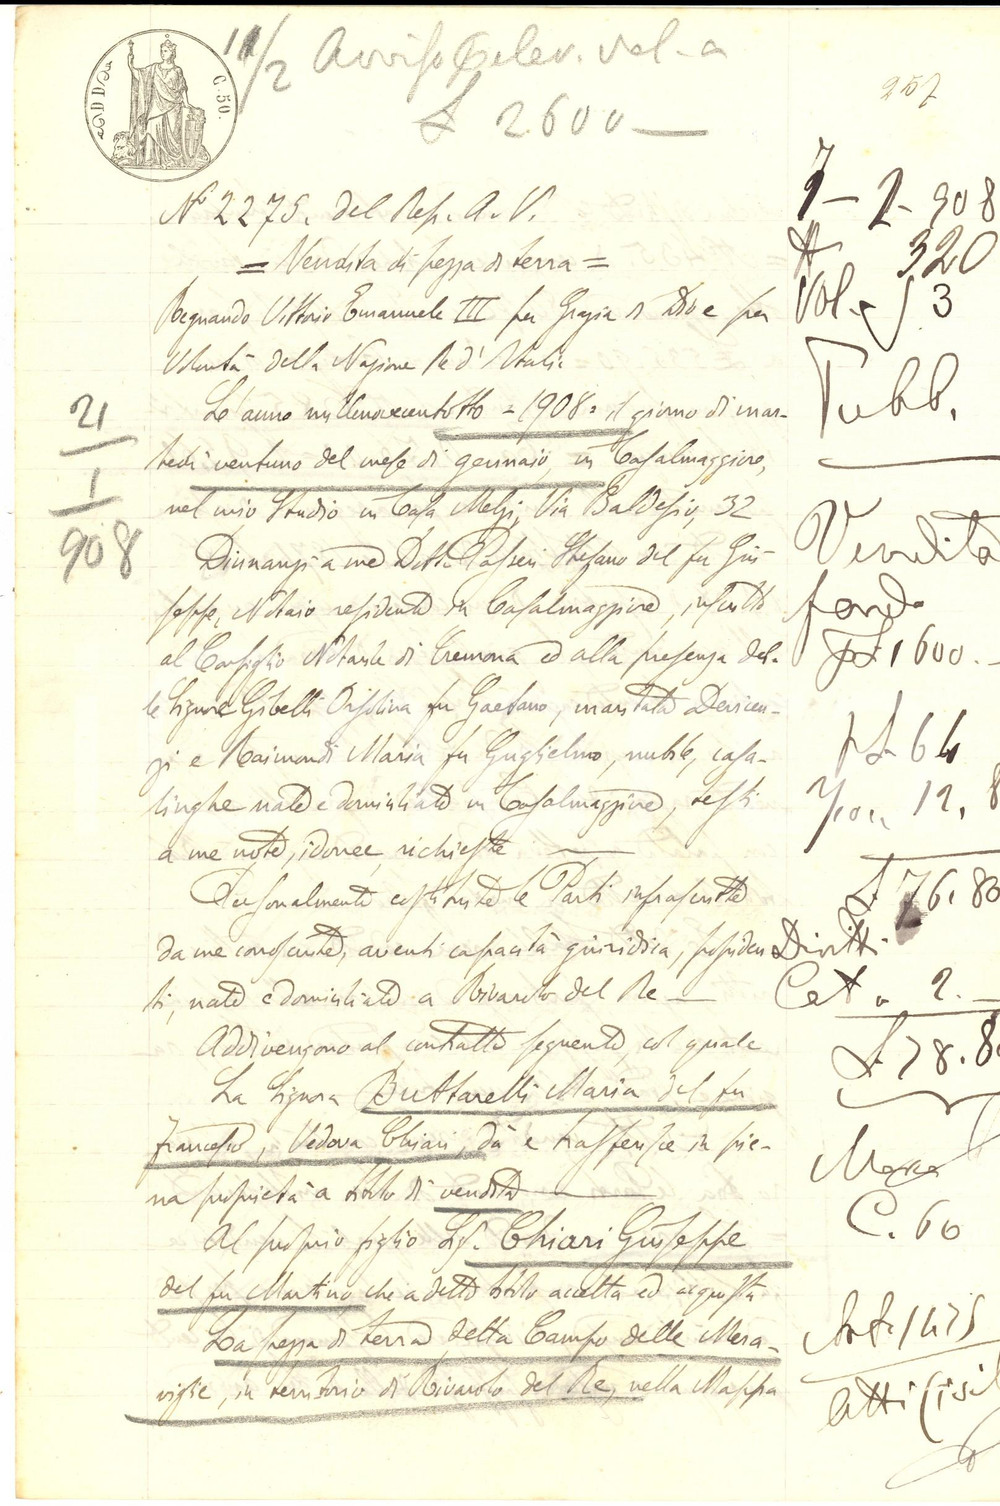 C. 50.
11/2
£ 2600
257
N° 2275. del Rep. A. V.
= Vendita di pezza di terra =
Regnando Vittorio Emanuele III per Grazia di Dio e per
Volontà della Nazione Re d'Italia
L'anno millenovecentotto = 1908 = il giorno di mar-
tedì ventuno del mese di gennaio, in Casalmaggiore,
nel mio Studio in Casa Melzi, Via Baldesio, 32
Dinnanzi a me Dott. Passeri Stefano del fu Giu
seppe, Notaio residente in Casalmaggiore, inscritto
al Consiglio Notarile di Cremona ed alla presenza del-
le Signore Gibelli Orsolina fu Gaetano, maritata
e Raimondi Maria fu Guglielmo, nubile, casa-
linghe nate e domiciliate in Casalmaggiore, testi
a me note, idonee, richieste
Personalmente costituite le Parti infrascritte
da me conosciute, aventi capacità giuridica, possiden
ti, nate e domiciliate a Rivarolo del Re
Addivengono al contratto seguente, col quale
La Signora Buttarelli Maria del fu
Francesco, Vedova Chiari, dà e trasferisce in pie-
na proprietà a titolo di vendita
Al proprio figlio Sig. Chiari Giuseppe
del fu Martino che a detto titolo accetta ed acquista
La pezza di terra detta Campo delle Mera-
viglie, in territorio di Rivarolo del Re, nella Mappa
21
1
908
7 - 2 - 908
N 320
Vol. 53
Pubb.
Vendita
fondo
£ 1600.
64
12.8
£ 76.80
Diritti
Cat. 2.
£ 78.8
C. 60
Art. 1475